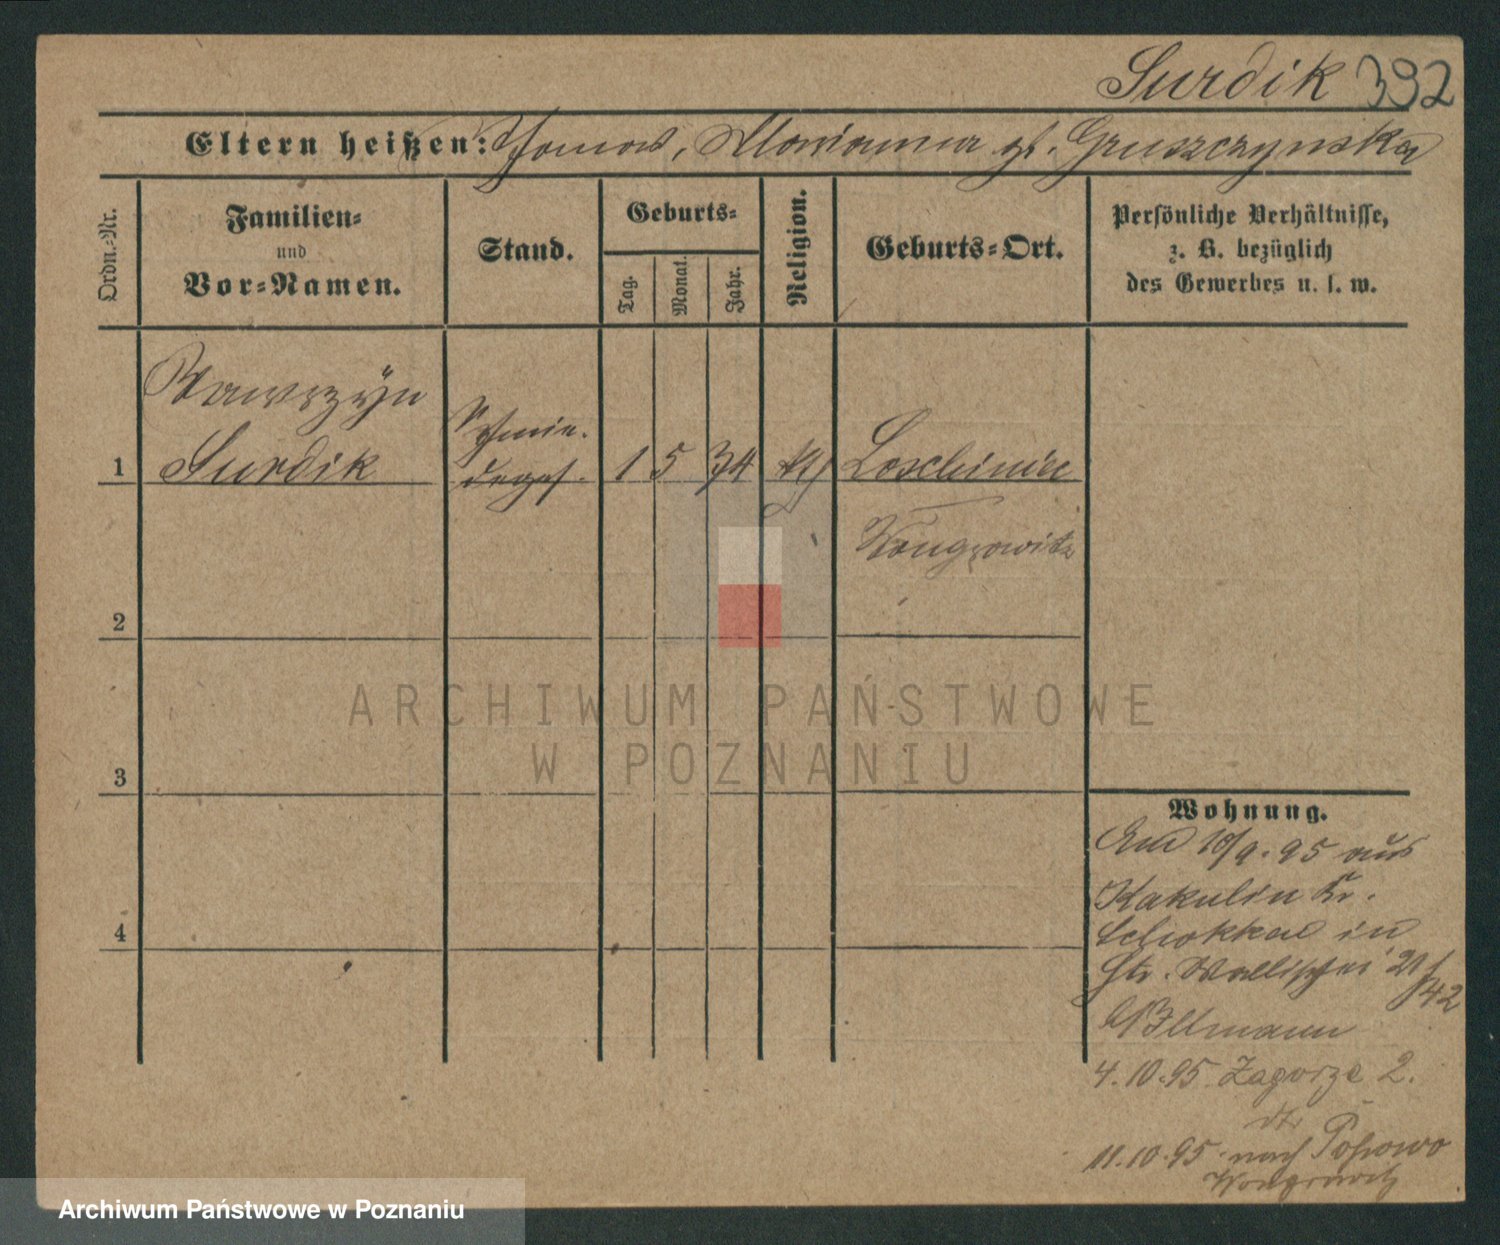 Surdik 392
Eltern heißen: Thomas, Marianna gb. Gruszczynska
Ordn.=Nr.
Familien=
und
Vor=Namen.
Stand.
Geburts=
Tag.
Monat.
Jahr.
Religion.
Geburts=Ort.
Persönliche Verhältnisse,
z. B. bezüglich
des Gewerbes u. s. w.
Wawrzyn
Surdik
Schmie-
degs.
1
1 5 34
Loschiniec
Wongrowitz
2
3
4
ARCHIWUM PAŃSTWOWE
W POZNANIU
Wohnung.
10/9.95 aus
Kakulin Kr.
Schokken in
Wallischei
42
4.10.95 Zagorze 2.
11.10.95 nach Popowo
Wongrowitz
Archiwum Państwowe w Poznaniu